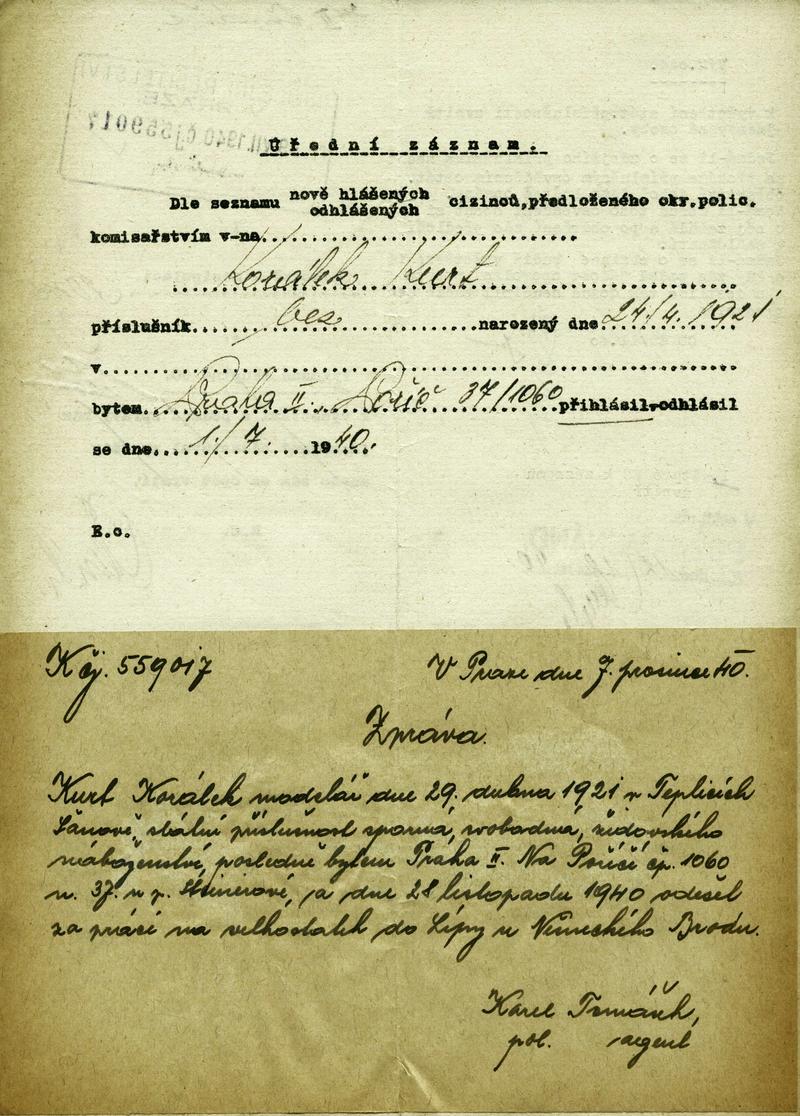 Úřední záznam.
Dle seznamu nově hlášených odhlášených cizinců,předloženého okr.polic.
komisařstvím v-na..............................
Korálek Kurt
příslušník bez narozený dne 24/4. 1921
v..............................
bytem Praha II., Poříč 37/1060 přihlásil-odhlásil
se dne 1./7. 1940.
E.o.
K čj. 559017
V Praze dne 7. prosince 40.
Zpráva.
Kurt Korálek modelář dne 29. dubna 1921 v Teplicích
Šanově, státní příslušnost sporná, svobodná, židovského
náboženství, posledně bytem Praha II. Na Poříčí čp. 1060
n. 37. u p. a dne 28 listopadu 1940 odešel
za prací na velkostatek do Lípy u Německého Brodu.
Karel
pol. agent